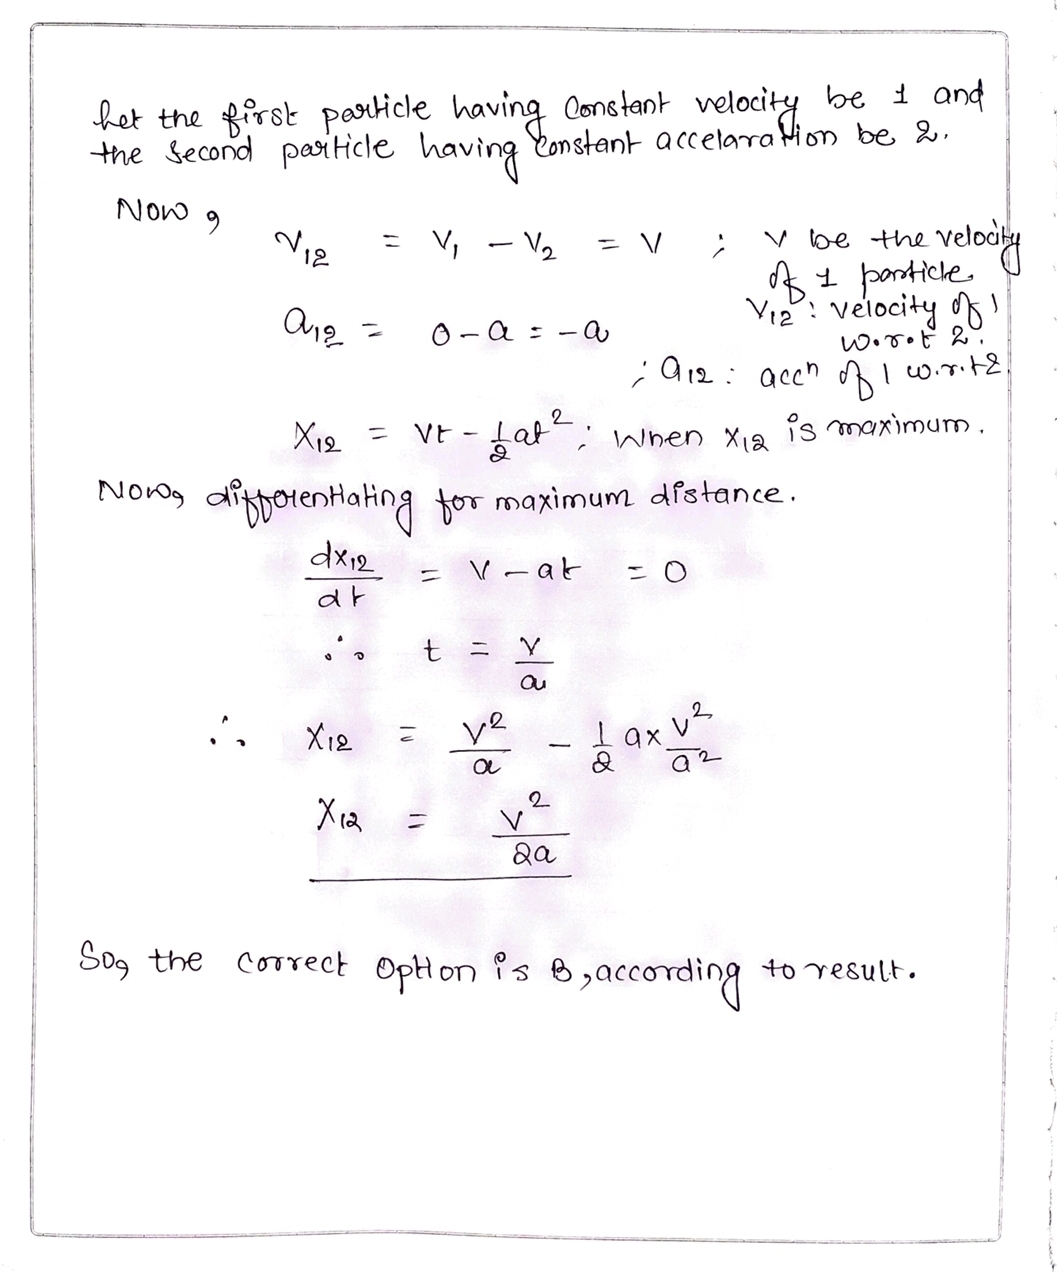 Let the first particle having Constant velocity be 1 and
the Second particle having Constant accelaration be 2.
Now,
V₁₂ = V₁ - V₂ = V ; V be the velocity
of 1 particle.
V₁₂ : velocity of 1
w.r.t 2.
a₁₂ = 0 - a = -a
; a₁₂ : accⁿ of 1 w.r.t 2.
X₁₂ = Vt - 1/2 at² ; When X₁₂ is maximum.
Now, differentiating for maximum distance.
dx₁₂/dt = V - at = 0
∴ t = V/a
∴ X₁₂ = V²/a - 1/2 a x V²/a²
X₁₂ = V²/2a
So, the correct option is B, according to result.